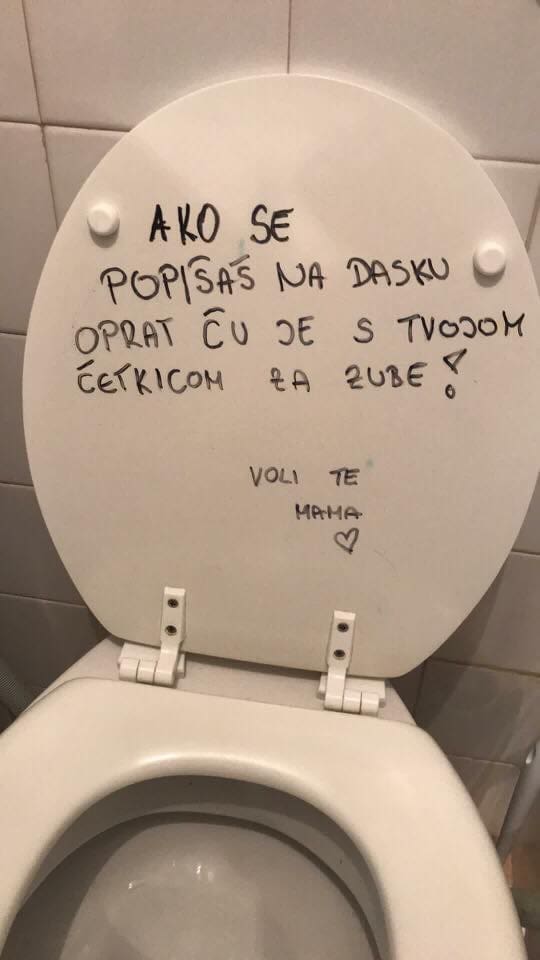 AKO SE
POPIŠAŠ NA DASKU
OPRAT ĆU JE S TVOJOM
ČETKICOM ZA ZUBE!
VOLI TE
MAMA
♡